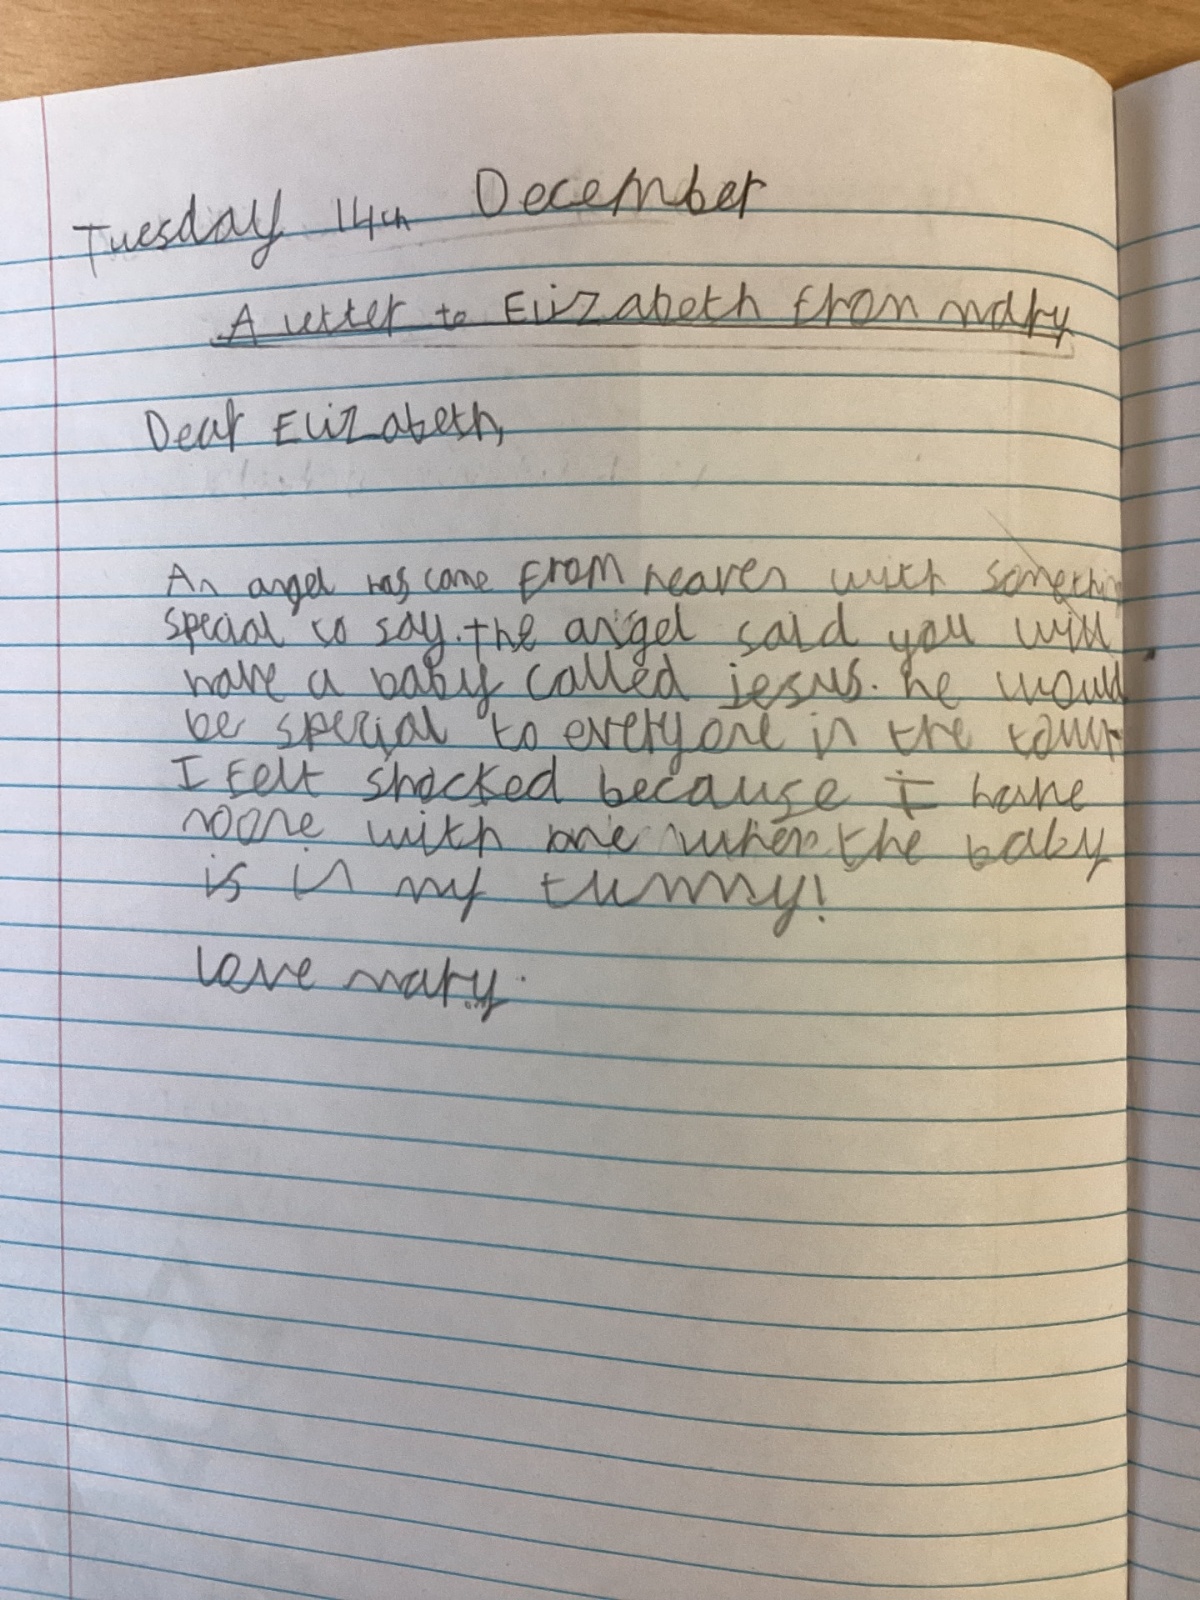 Tuesday 14th December
A letter to Elizabeth from mary
Dear Elizabeth,
An angel has come from heaven with somethin
special to say. the angel said you will
have a baby called jesus. he would
be special to everyone in the town
I felt shocked because I have
noone with me when the baby
is in my tummy!
love mary.